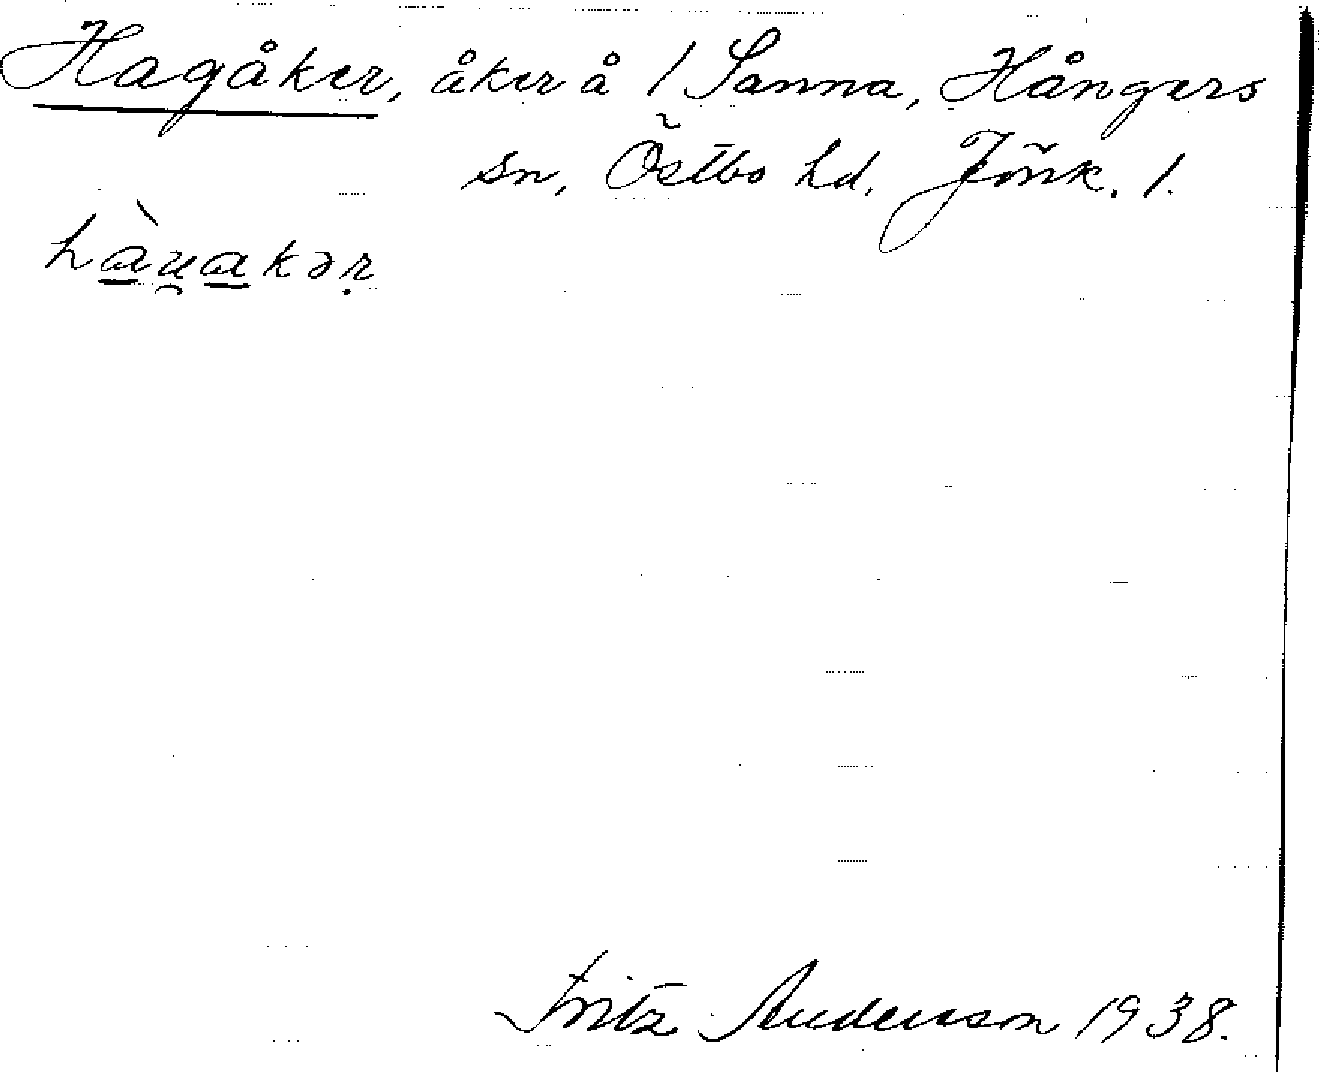 Hagåker, åker å 1 Sanna, Hångers
sn, Östbo hd. Jönk. l.
hàu̯akər̤
Fritz Anderson 1938.